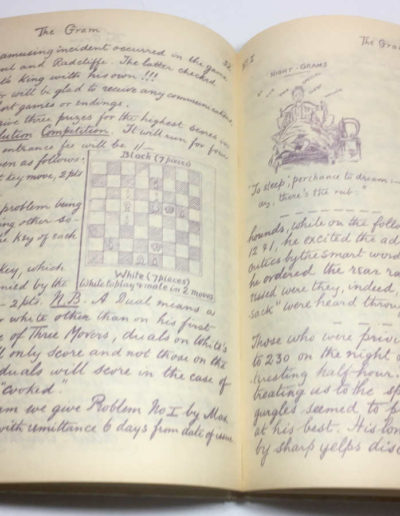 The Gram
amusing incident occurred in the game
and Radcliffe. The latter checked
King with his own!!!
will be glad to receive any communications
games or endings.
three prizes for the highest scores in
lution Competition. It will run for five
entrance fee will be 1/-
as follows:
key move, 2 pts
problem being
other so-
key of each
key, which
by the
2 pts. N.B. A Dual means a
white other than on his first
of Three Movers, duals on White's
only score and not those on the
duals will score in the case of
"cooked".
we give Problem No I by Max
with remittance 6 days from date of issue
Black (7 pieces)
White (7 pieces)
White to play & mate in 2 moves
The Gra
NIGHT-GRAMS
"To sleep, perchance to dream
ay, there's the rub."
hounds, while on the follow
12 & 1, he excited the ad
by the smart word
he ordered the rear ra
were they, indeed,
sack" were heard throu
Those who were privi
to 230 on the night o
half-hour.
treating us to the sp
gurgles seemed to
at his best. His lon
by sharp yelps disc